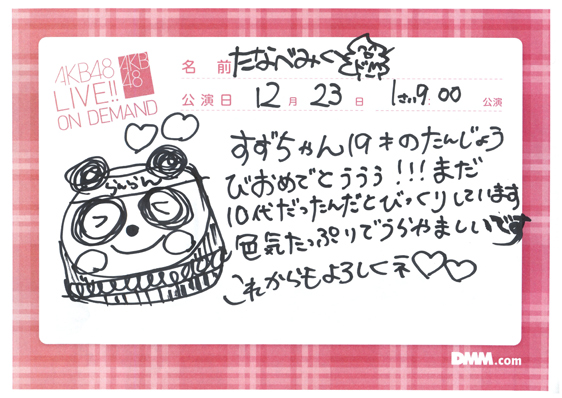 AKB48
LIVE!!
ON DEMAND
AKB
48
名 前 たなべみく
公演日 12 月 23 日 9:00 公演
すずちゃん19才のたんじょう
びおめでとううう!!!まだ
10代だったんだとびっくりしています
色気たっぷりでうらやましいです
これからもよろしくネ
らんらん
DMM.com